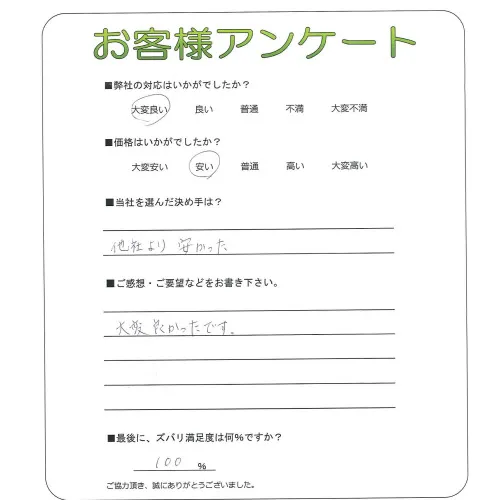 お客様アンケート
■弊社の対応はいかがでしたか？
大変良い 良い 普通 不満 大変不満
■価格はいかがでしたか？
大変安い 安い 普通 高い 大変高い
■当社を選んだ決め手は？
他社より 安かった
■ご感想・ご要望などをお書き下さい。
大変良かったです。
■最後に、ズバリ満足度は何％ですか？
100 ％
ご協力頂き、誠にありがとうございました。